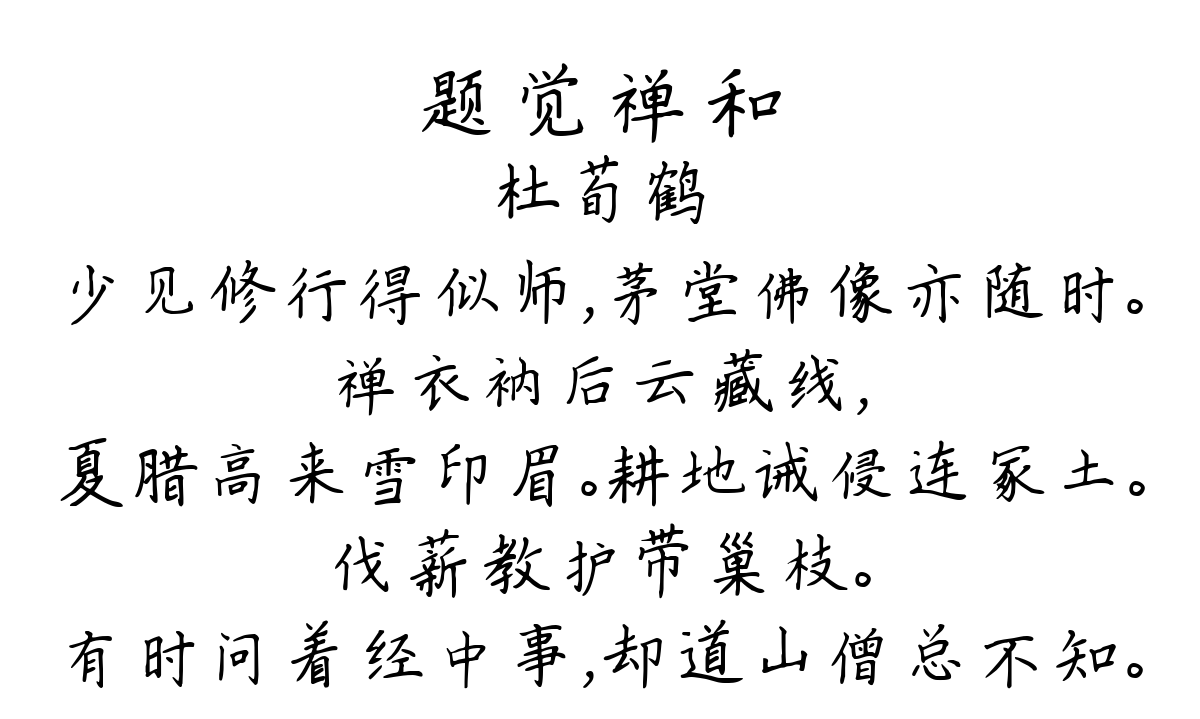 题觉禅和
杜荀鹤
少见修行得似师,茅堂佛像亦随时。
禅衣衲后云藏线,
夏腊高来雪印眉。耕地诫侵连冢土。
伐薪教护带巢枝。
有时问着经中事,却道山僧总不知。